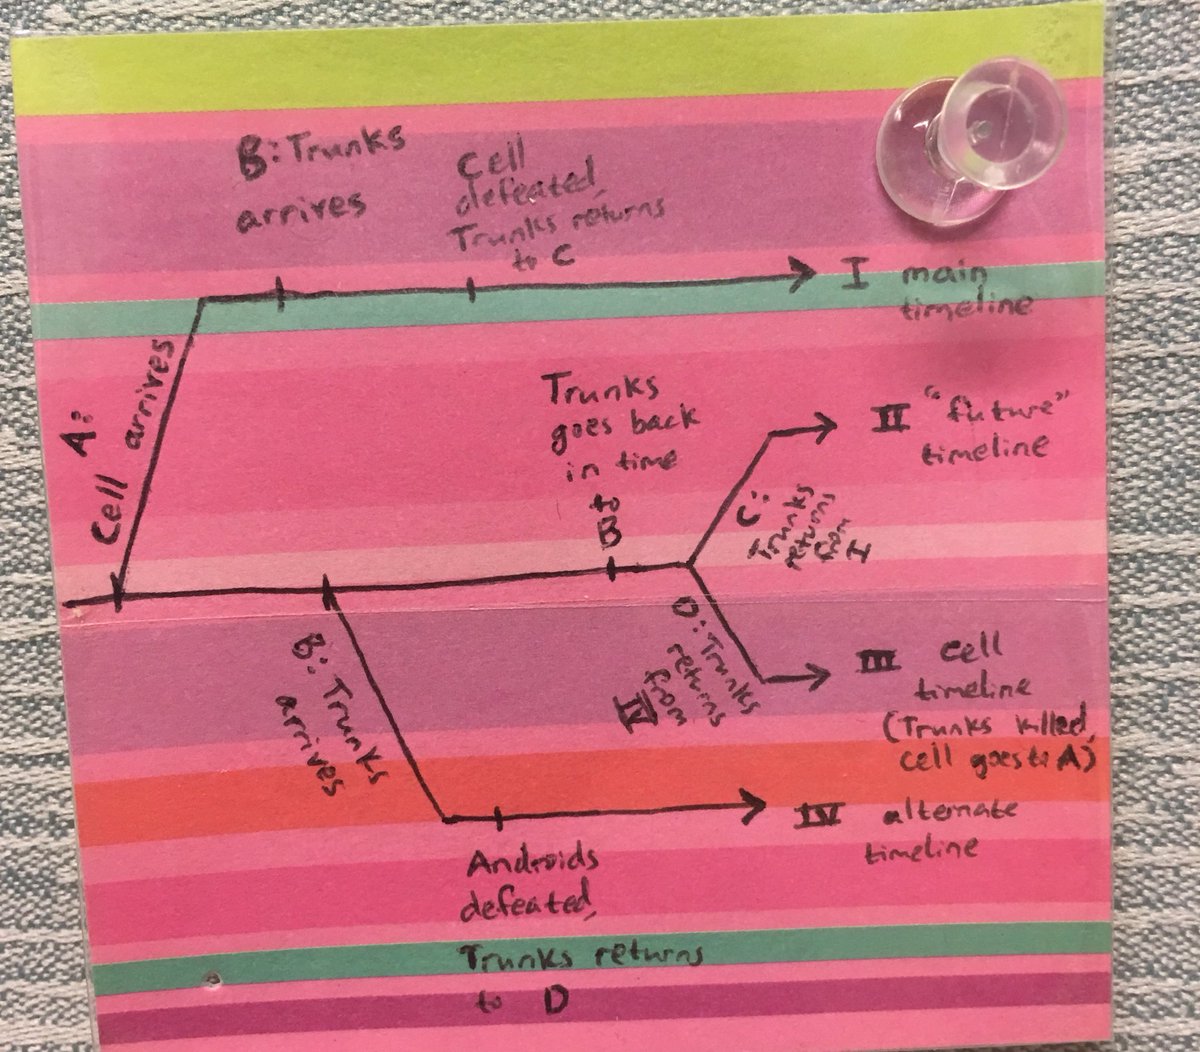 B: Trunks
arrives
Cell
defeated,
Trunks returns
to C
I main
timeline
A:
Cell arrives
Trunks
goes back
in time
to
B
II "future"
timeline
C:
Trunks
returns
from I
B: Trunks
arrives
D: Trunks
returns
from
IV
III Cell
timeline
(Trunks killed,
cell goes to A)
IV alternate
timeline
Androids
defeated,
Trunks returns
to D